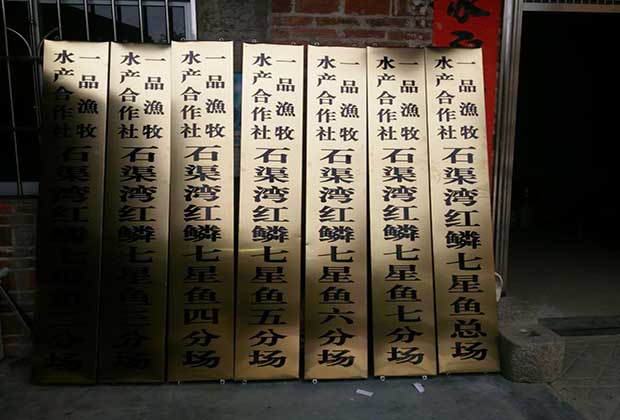 一品漁牧
水产合作社
石渠湾红鳞七星鱼二分场
一品漁牧
水产合作社
石渠湾红鳞七星鱼三分场
一品漁牧
水产合作社
石渠湾红鳞七星鱼四分场
一品漁牧
水产合作社
石渠湾红鳞七星鱼五分场
一品漁牧
水产合作社
石渠湾红鳞七星鱼六分场
一品漁牧
水产合作社
石渠湾红鳞七星鱼七分场
一品漁牧
水产合作社
石渠湾红鳞七星鱼总场